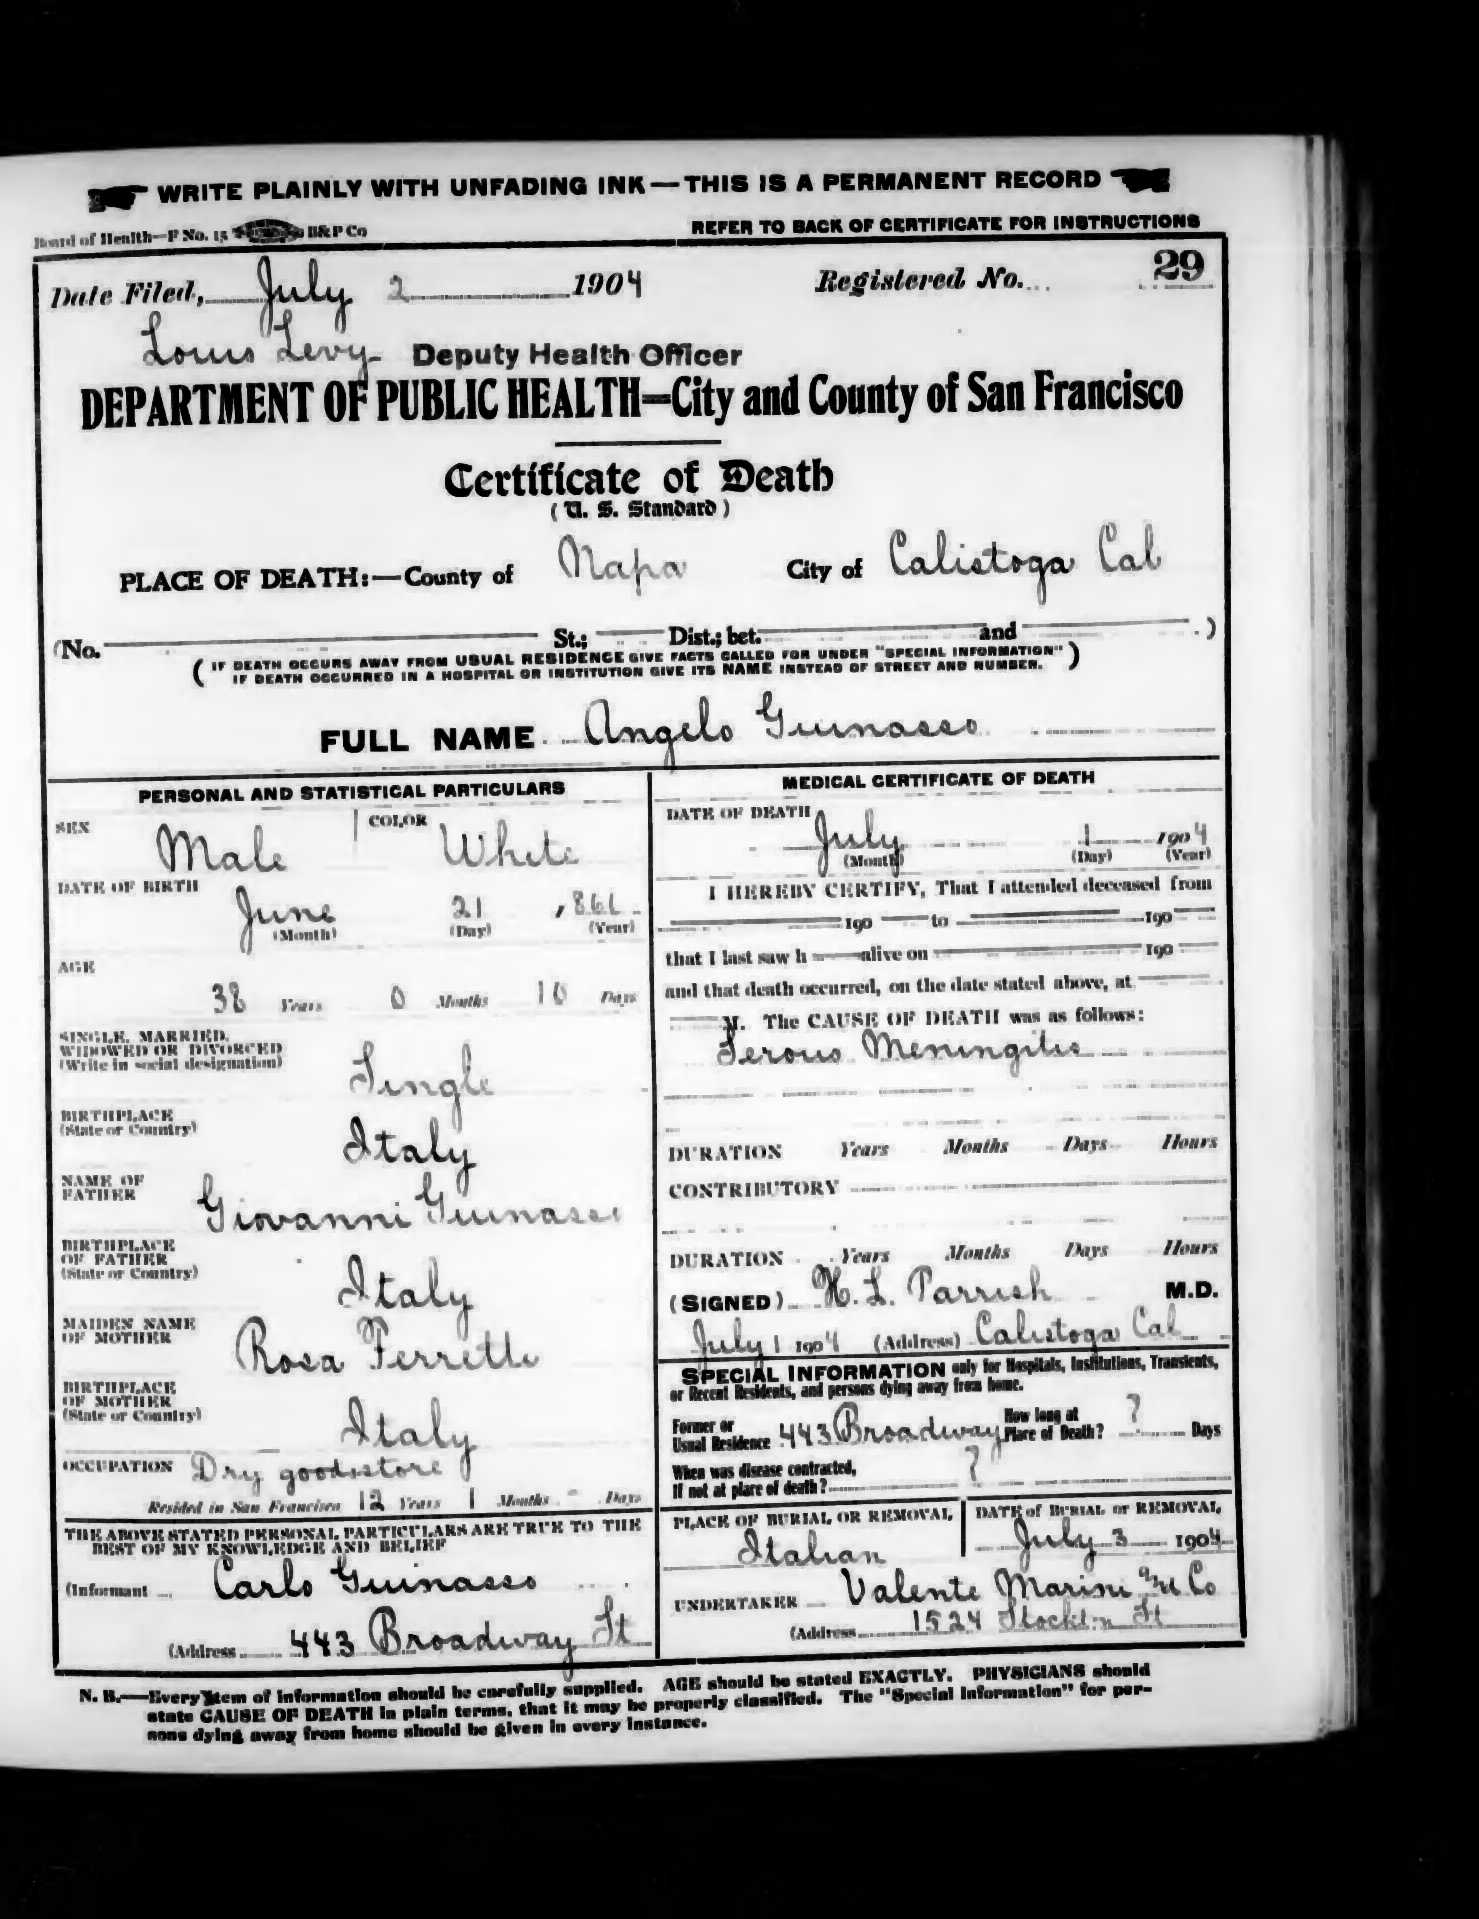 WRITE PLAINLY WITH UNFADING INK—THIS IS A PERMANENT RECORD
Board of Health—F No. 15 B&P Co
REFER TO BACK OF CERTIFICATE FOR INSTRUCTIONS
Date Filed, July 2 1904 Registered No. 29
Louis Levy Deputy Health Officer
DEPARTMENT OF PUBLIC HEALTH—City and County of San Francisco
Certificate of Death
(U. S. Standard)
PLACE OF DEATH:—County of Napa City of Calistoga Cal
(No. St.; Dist.; bet. and )
(IF DEATH OCCURS AWAY FROM USUAL RESIDENCE GIVE FACTS CALLED FOR UNDER "SPECIAL INFORMATION"
IF DEATH OCCURRED IN A HOSPITAL OR INSTITUTION GIVE ITS NAME INSTEAD OF STREET AND NUMBER.)
FULL NAME Angelo Guinasso
PERSONAL AND STATISTICAL PARTICULARS
SEX Male COLOR White
DATE OF BIRTH
June 21 , 866
(Month) (Day) (Year)
AGE
38 Years 0 Months 10 Days
SINGLE, MARRIED,
WIDOWED OR DIVORCED
(Write in social designation)
Single
BIRTHPLACE
(State or Country)
Italy
NAME OF
FATHER
Giovanni Guinasso
BIRTHPLACE
OF FATHER
(State or Country)
Italy
MAIDEN NAME
OF MOTHER
Rosa
BIRTHPLACE
OF MOTHER
(State or Country)
Italy
OCCUPATION Dry goods store
Resided in San Francisco 12 Years 1 Months - Days
THE ABOVE STATED PERSONAL PARTICULARS ARE TRUE TO THE
BEST OF MY KNOWLEDGE AND BELIEF
(Informant Carlo Guinasso
(Address 443 Broadway St
MEDICAL CERTIFICATE OF DEATH
DATE OF DEATH
July 1 1904
(Month) (Day) (Year)
I HEREBY CERTIFY, That I attended deceased from
190 to 190
that I last saw h alive on 190
and that death occurred, on the date stated above, at
M. The CAUSE OF DEATH was as follows:
Serous Meningitis
DURATION Years Months Days Hours
CONTRIBUTORY
DURATION Years Months Days Hours
(SIGNED) H. L. Parrish M.D.
July 1 1904 (Address) Calistoga Cal
SPECIAL INFORMATION only for Hospitals, Institutions, Transients,
or Recent Residents, and persons dying away from home.
Former or
Usual Residence 443 Broadway
How long at
Place of Death? ? Days
When was disease contracted,
If not at place of death? ?
PLACE OF BURIAL OR REMOVAL
Italian
DATE of BURIAL or REMOVAL
July 3 1904
UNDERTAKER Valente Marini and Co
(Address 1524 Stockton St
N. B.—Every item of information should be carefully supplied. AGE should be stated EXACTLY. PHYSICIANS should
state CAUSE OF DEATH in plain terms, that it may be properly classified. The "Special Information" for per-
sons dying away from home should be given in every instance.